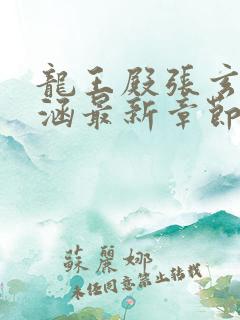 龍王殿張玄
涵最新章節
蘇麗娜
未任同意禁止轉載